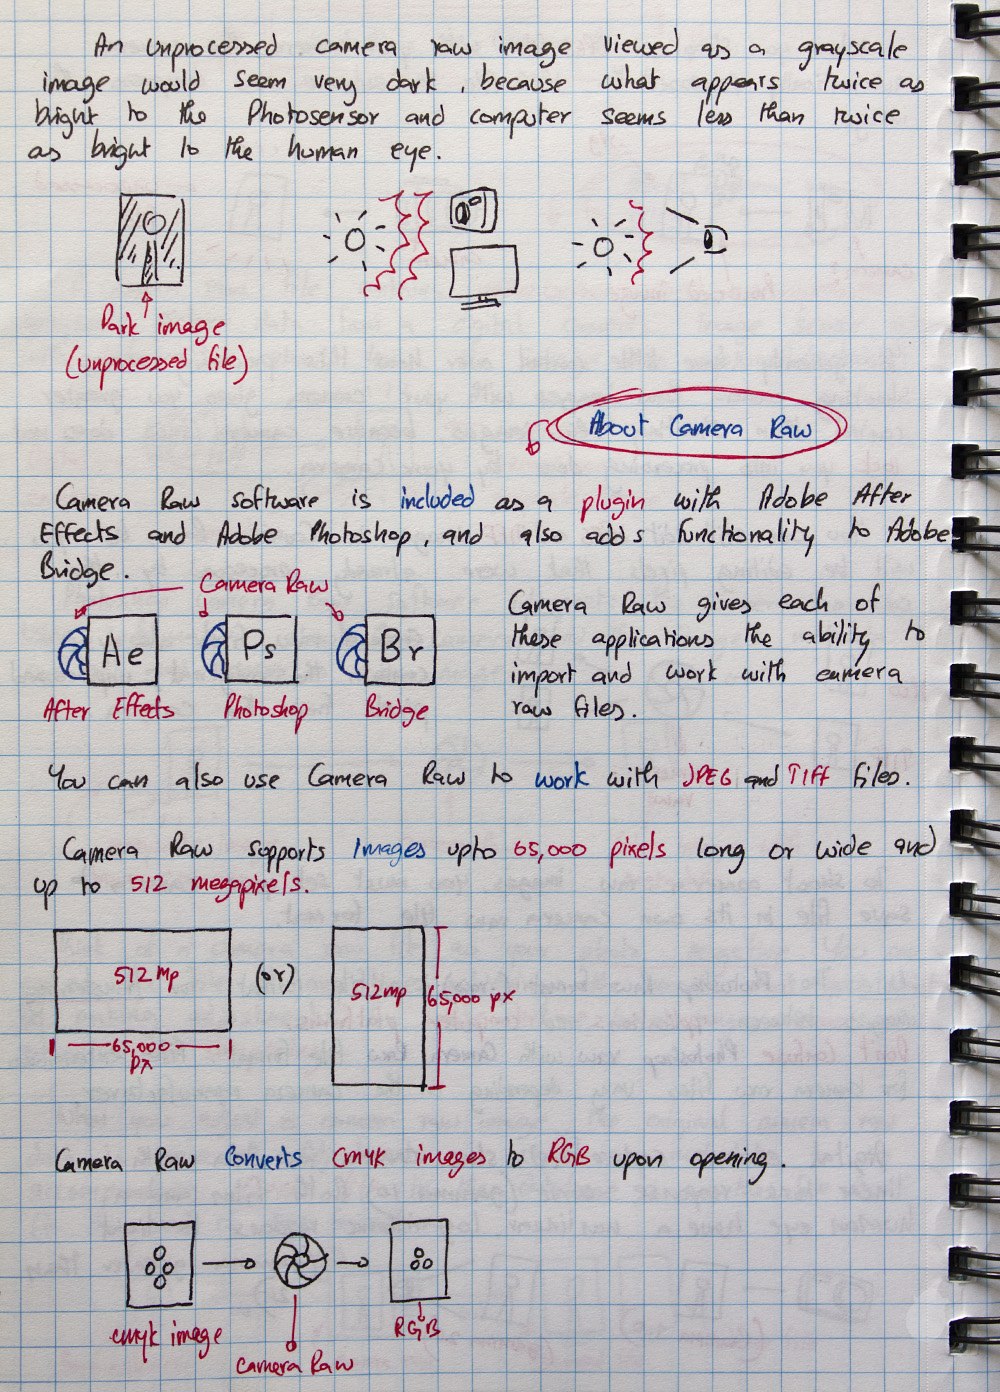 An unprocessed camera raw image viewed as a grayscale
image would seem very dark, because what appears twice as
bright to the Photosensor and computer seems less than twice
as bright to the human eye.
Dark image
(unprocessed file)
About Camera Raw
Camera Raw software is included as a plugin with Adobe After
Effects and Adobe Photoshop, and also adds functionality to Adobe
Bridge.
Camera Raw
Ae
Ps
Br
After Effects
Photoshop
Bridge
Camera Raw gives each of
these applications the ability to
import and work with camera
raw files.
You can also use Camera Raw to work with JPEG and TIFF files.
Camera Raw supports images upto 65,000 pixels long or wide and
up to 512 megapixels.
512 Mp
65,000
px
(or)
512mp
65,000 px
Camera Raw Converts CMYK images to RGB upon opening.
cmyk image
Camera Raw
RGB